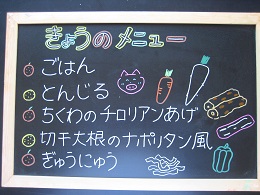 きょうのメニュー
ごはん
とんじる
ちくわのチロリアンあげ
切干大根のナポリタン風
ぎゅうにゅう